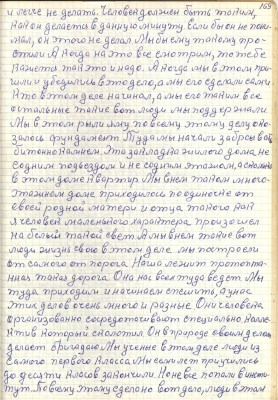 169
и легче не делать. Человек должен быть таким,
как он делается в данную минуту. Если бы он не пони-
мал, он этого не делал. Мы ему такому про-
стили. А когда на это все смотрим, то тебе
кажется так это и надо. А когда мы в этом при-
шли и убедились в это дело, а мы его сделали сами.
Кто в этом деле начинал, а мы его таким все
остальные такие вот люди мы поддержали
Мы в этом рыли яму по всему этому делу ока-
залось фундамент Туда мы начали забрасыва
бутонным камнем Это закладка жилого дома не
с одним подъездом и не с одним этажом, а сколько
в этом доме квартир Мы в нем таком много-
этажном доме приходилось по одиночке от
своей родной матери и отца такого как
я человек маленького характера произошел
на белый такой свет. А мы в нем такие вот
люди жизнь свою в этом деле мы построили
от самого от порога Наша лежит протопта-
нная такая дорога Она нас всех туда ведет Мы
туда приходим и начинаем спешить, а у нас
этих делов очень много и разные Они человека
организованно сосредотачивают специально колле-
ктив который сколотил Он в природе своим делом
делает бригадою Мы ученые в этом деле люди из
самого первого класса Мы все или приучились
до десяти классов закончили Но не все попали в инсти-
тут. По всему этому сделано вот дело, люди в этом